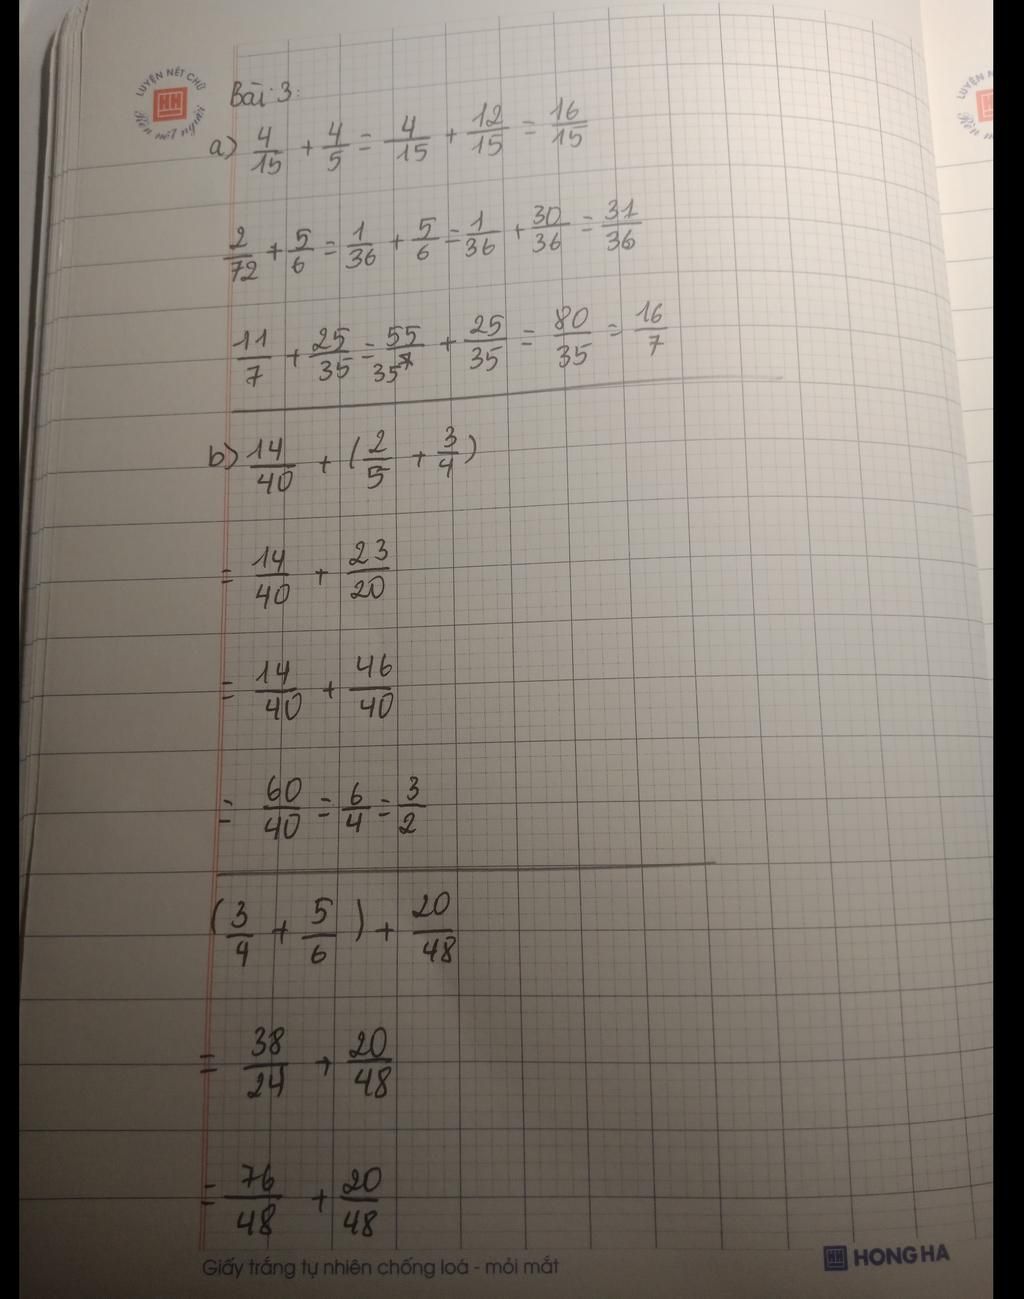 LUYỆN NÉT CHỮ
HH
Rèn nết người
LUYỆN N
Bài 3:
a) 4/15 + 4/5 = 4/15 + 12/15 = 16/15
2/72 + 5/6 = 1/36 + 5/6 = 1/36 + 30/36 = 31/36
11/7 + 25/35 = 55/35 + 25/35 = 80/35 = 16/7
b) 14/40 + (2/5 + 3/4)
= 14/40 + 23/20
= 14/40 + 46/40
= 60/40 = 6/4 = 3/2
(3/4 + 5/6) + 20/48
= 38/24 + 20/48
= 76/48 + 20/48
Giấy trắng tự nhiên chống loá - mỏi mắt
HH HONG HA